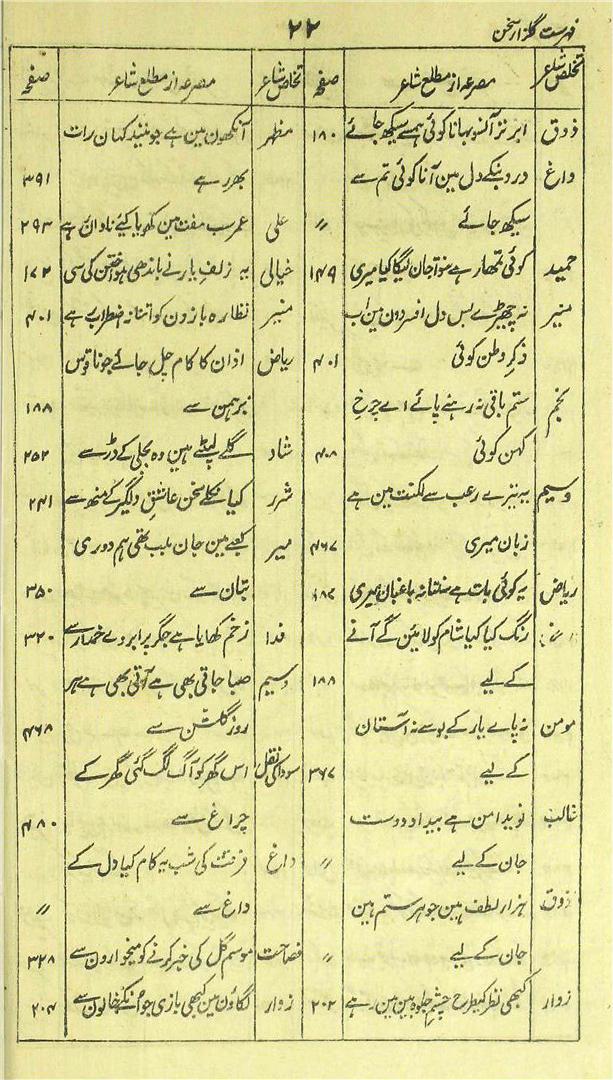 فہرست گلزار سخن
۲۲
تخلص شاعر مصرعہ از مطلع شاعر صفحہ
ذوق ابر تر آنسو بہانا کوئی ہمسے سیکھ جائے ۱۸۰
داغ درد بنکے دل مین آنا کوئی تم سے
سیکھ جائے 〃
حمید کوئی تمھار ہے سنو تو جان لیگا کیا میری ۱۴۹
منیر نہ چھیڑے بس دل افسردون مین اب
ذکرِ وطن کوئی ۴۰۱
نجم ستم باقی نہ رہنے پائے اے چرخِ
کہن کوئی ۴۰۸
وسیم یہ تیرے رعب سے لکنت مین ہے
زبان میری ۴۶۷
ریاض یہ کوئی بات ہے سنتا نہ باغبان میری ۱۸۷
رنگ کیا کیا شام کو لائین گے آنے
کے لیے ۱۸۸
مومن نہ پاے یار کے بوسے نہ آستان
کے لیے ۳۶۷
غالب نوید امن ہے بیداد دوست
جان کے لیے 〃
ذوق ہزار لطف ہین جو ہر ستم مین
جان کے لیے 〃
زوار کبھی نظر کیطرح چشمِ جلوہ بین مین رہے ۲۰۲
تخلص شاعر مصرعہ از مطلع شاعر صفحہ
مظہر آنکھون مین ہے جو نیند کہان رات
بھر رہے ۳۹۱
علی عمر سب مفت مین کھویا کیئے نادان ہے ۲۹۳
خیالی یہ زلفِ یار نے باندھی ہوا ختن کی سی ۱۷۲
منیر نظارہ بازون کو اتنا نہ اضطراب ہے ۴۰۱
ریاض اذان کا کام چل جائے جو ناقوس
برہمن سے ۱۸۸
شاد گلے لپٹے ہین وہ بجلی کے ڈر سے ۲۵۲
شرر کیا نکلے سخن عاشقِ دلگیر کے منھ سے ۲۴۱
میر کعبے مین جان بلب تھی ہم دوری
بتان سے ۳۵۰
فدا زخم کھایا ہے جگر پر ابروے خمدار سے ۳۲۰
وسیم صبا جاتی بھی ہے آتی بھی ہے ہر
روز گلشن سے ۴۶۸
سودا کی نقل اس گھر کو آگ لگ گئی گھر کے
چراغ سے ۴۸۰
داغ فرقت کی شب یہ کام کیا دل کے
داغ سے 〃
فصاحت موسم گل کی خبر کرنے کو میخوارون سے ۳۲۸
زوار لگاؤن مین کبھی بازی جو انکے خالون سے ۲۰۴